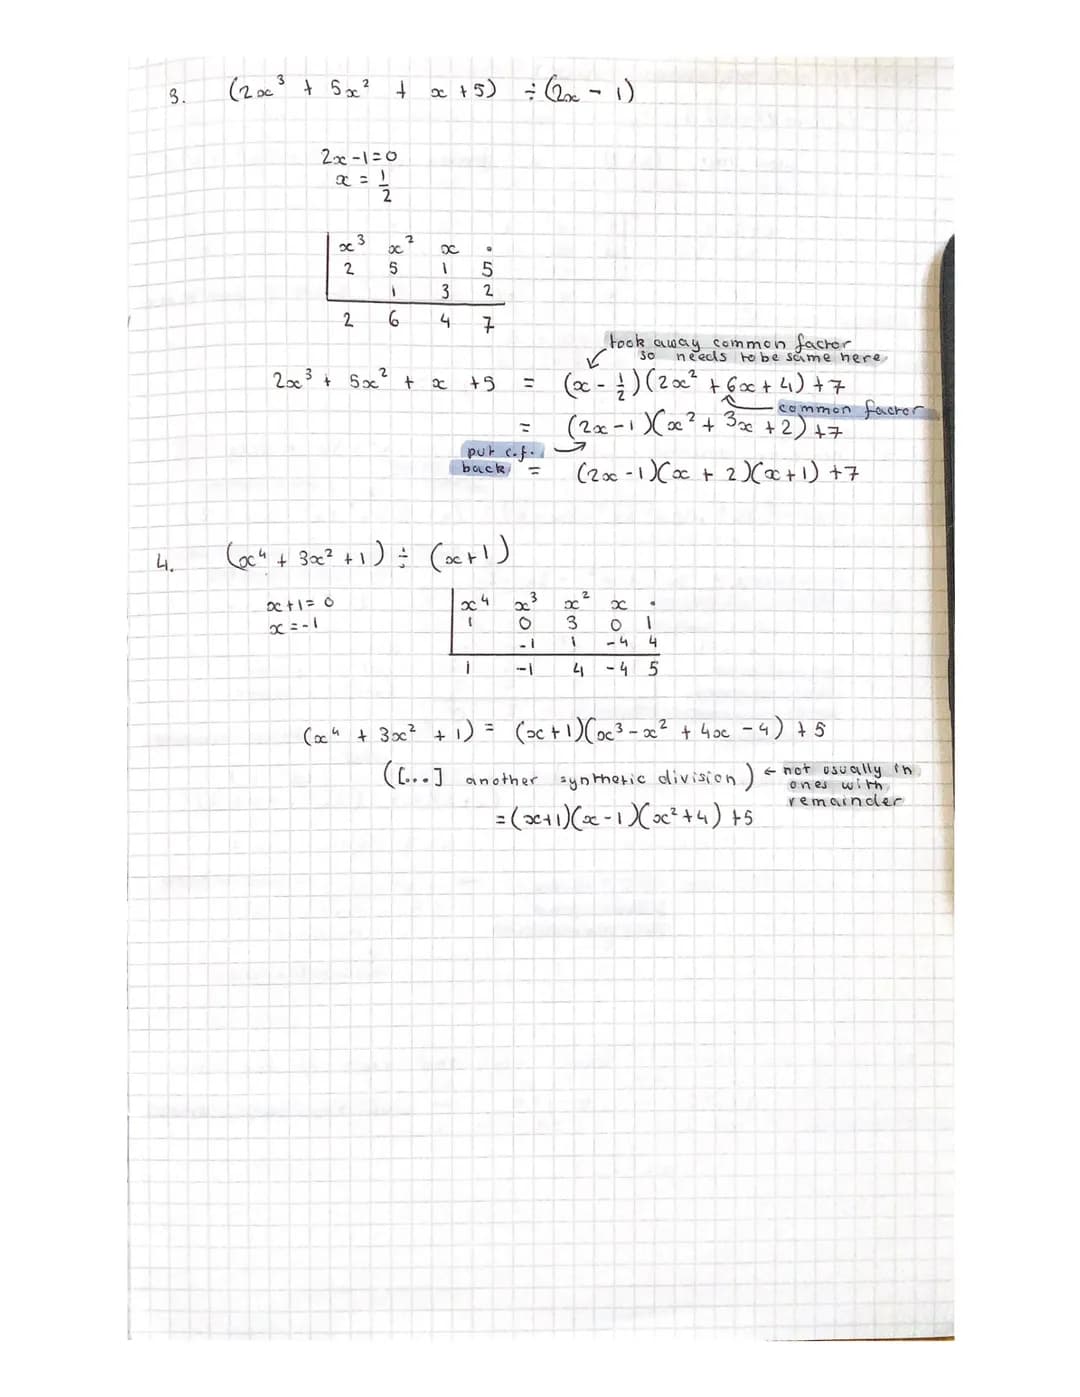 3. (2x³ + 5x² + x + 5) ÷ (2x - 1)
2x - 1 = 0
x = 1/2
x³ x² x •
2 5 1 5
1 3 2
2 6 4 7
took away common factor
so needs to be same here
2x³ + 5x² + x + 5 = (x - 1/2)(2x² + 6x + 4) + 7
common factor
= (2x - 1)(x² + 3x + 2) + 7
put c.f.
back = (2x - 1)(x + 2)(x + 1) + 7
4. (x⁴ + 3x² + 1) ÷ (x + 1)
x + 1 = 0
x = -1
x⁴ x³ x² x •
1 0 3 0 1
-1 1 -4 4
1 -1 4 -4 5
(x⁴ + 3x² + 1) = (x + 1)(x³ - x² + 4x - 4) + 5
([...] another synthetic division) ← not usually in
ones with
remainder
= (x+1)(x-1)(x²+4) + 5